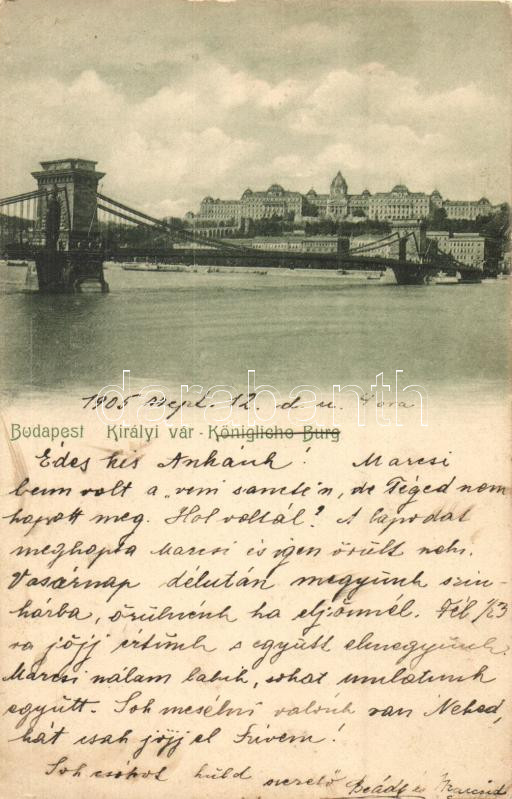 1905 sept. 12. d. u. 4 ora
Budapest Királyi vár - Königliche Burg
Édes kis Ankánk! Marcsi
benn volt a „veni sancte"n, de Téged nem
kapott meg. Hol voltál? A lapodat
megkapta Marcsi és igen örült neki.
Vasárnap délután megyünk szin-
kárba, örülnénk ha eljönnél. Fél 1/23
ra jöjj értünk s együtt elmegyünk.
Marcsi nálam lakik, sokat mulatunk
együtt. Sok mesélni valónk van Neked,
hát csak jöjj el Szivem!
Sok csókot küld szerető és Marcsid
darabanth